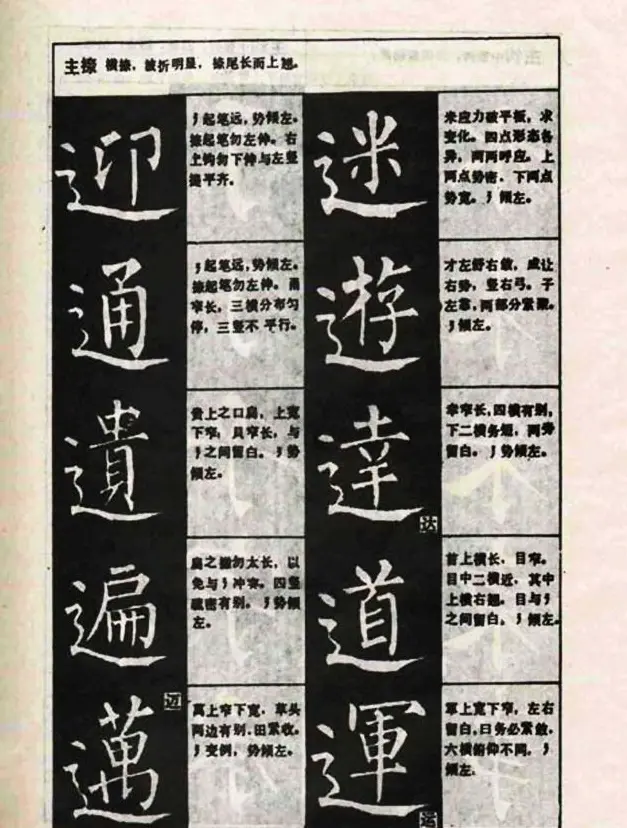 主捺 横捺，波折明显，捺尾长而上翘。
迷
米应力破平板，求
变化。四点形态各
异，两两呼应。上
两点势密、下两点
势宽。㇋倾左。
迎
㇋起笔远，势倾左。
捺起笔勿左伸。右
上钩勿下伸与左竖
提平齐。
遊
才左舒右敛，成让
右势，竖右弓。子
左靠，两部分紧聚。
㇋倾左。
通
㇋起笔远，势倾左。
捺起笔勿左伸。甬
窄长，三横分布匀
停，三竖不平行。
達
达
幸窄长，四横有别，
下二横务短，两旁
留白。㇋势倾左。
遺
贵上之口扁，上宽
下窄，贝窄长，与
㇋之间留白。㇋势
倾左。
道
首上横长，目窄。
目中二横近，其中
上横右翘。目与㇋
之间留白。㇋倾左。
遍
扁之撇勿太长，以
免与㇋冲突。四竖
疏密有别。㇋势倾
左。
運
运
军上宽下窄，左右
留白，曰务必紧敛。
六横俯仰不同，㇋
倾左。
邁
迈
萬上窄下宽，草头
两边有别，田紧收。
㇋变例，势倾左。